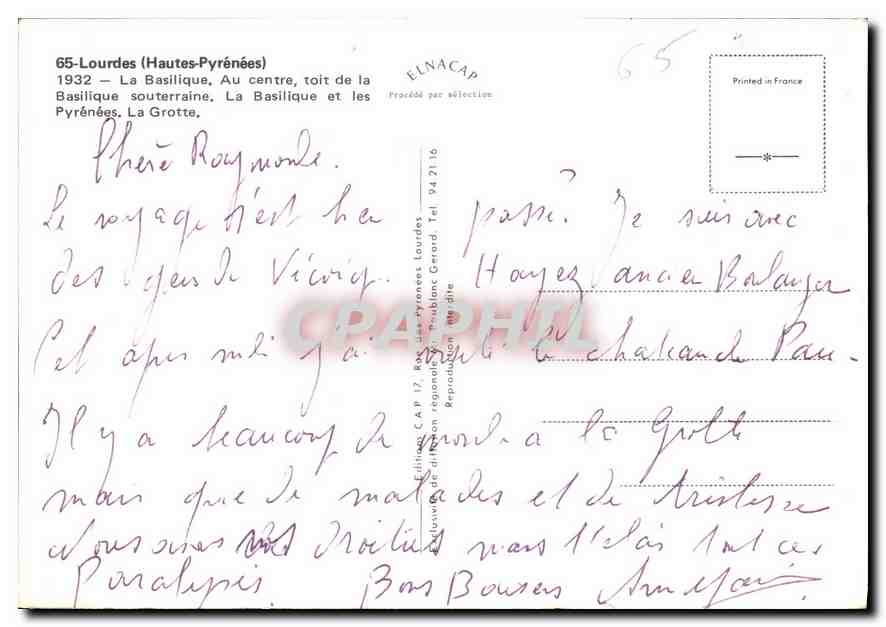 65-Lourdes (Hautes-Pyrénées)
1932 — La Basilique. Au centre, toit de la
Basilique souterraine. La Basilique et les
Pyrénées. La Grotte.
ELNACAP
Procédé par sélection
65
Printed in France
Chère Raymonde.
Le voyage s'est bien passé. Je suis avec
des gens de Hayez ancien Boulanger
Cet après midi j'ai visité le chateau de Pau -
Il y a beaucoup de monde a la Grotte
mais que de malades et de tristesse
Nous avons nos mais tout ces
Paralysés. Bons Baisers
Editions C.A.P. 17, Rue des Pyrénées Lourdes
Exclusivité de diffusion régionale Poublanc Gerard. Tel. 94.21.16
Reproduction interdite
CPAPHIL